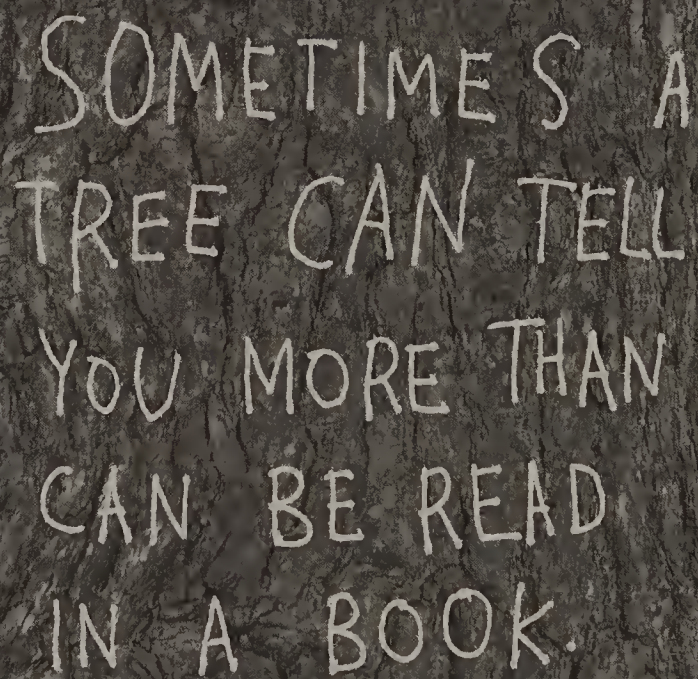 SOMETIMES A
TREE CAN TELL
YOU MORE THAN
CAN BE READ
IN A BOOK.